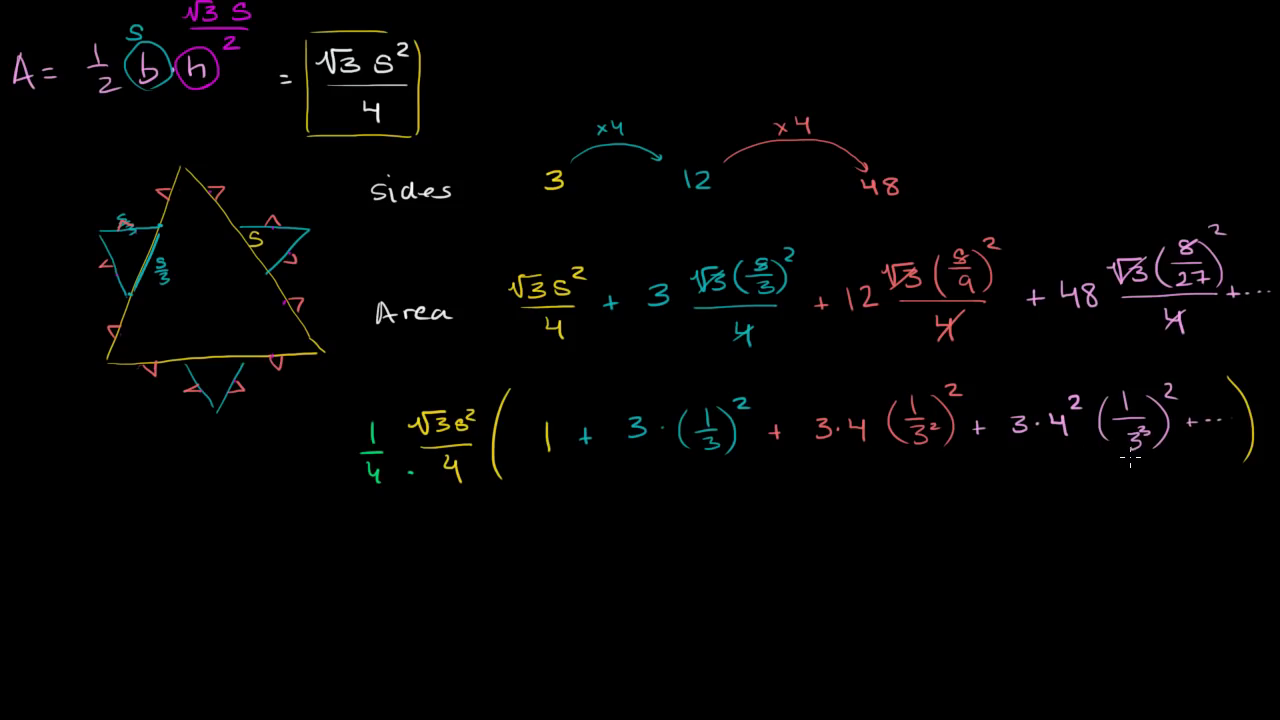 A = 1/2 b · h = √3 s²/4
s √3 s/2
sides 3 ×4 12 ×4 48
s/3 s/3 s
Area √3s²/4 + 3 √3(s/3)²/4 + 12 √3(s/9)²/4 + 48 √3(s/27)²/4 + ...
1/4 · √3s²/4 ( 1 + 3 · (1/3)² + 3·4 (1/3²)² + 3·4² (1/3³)² + ... )